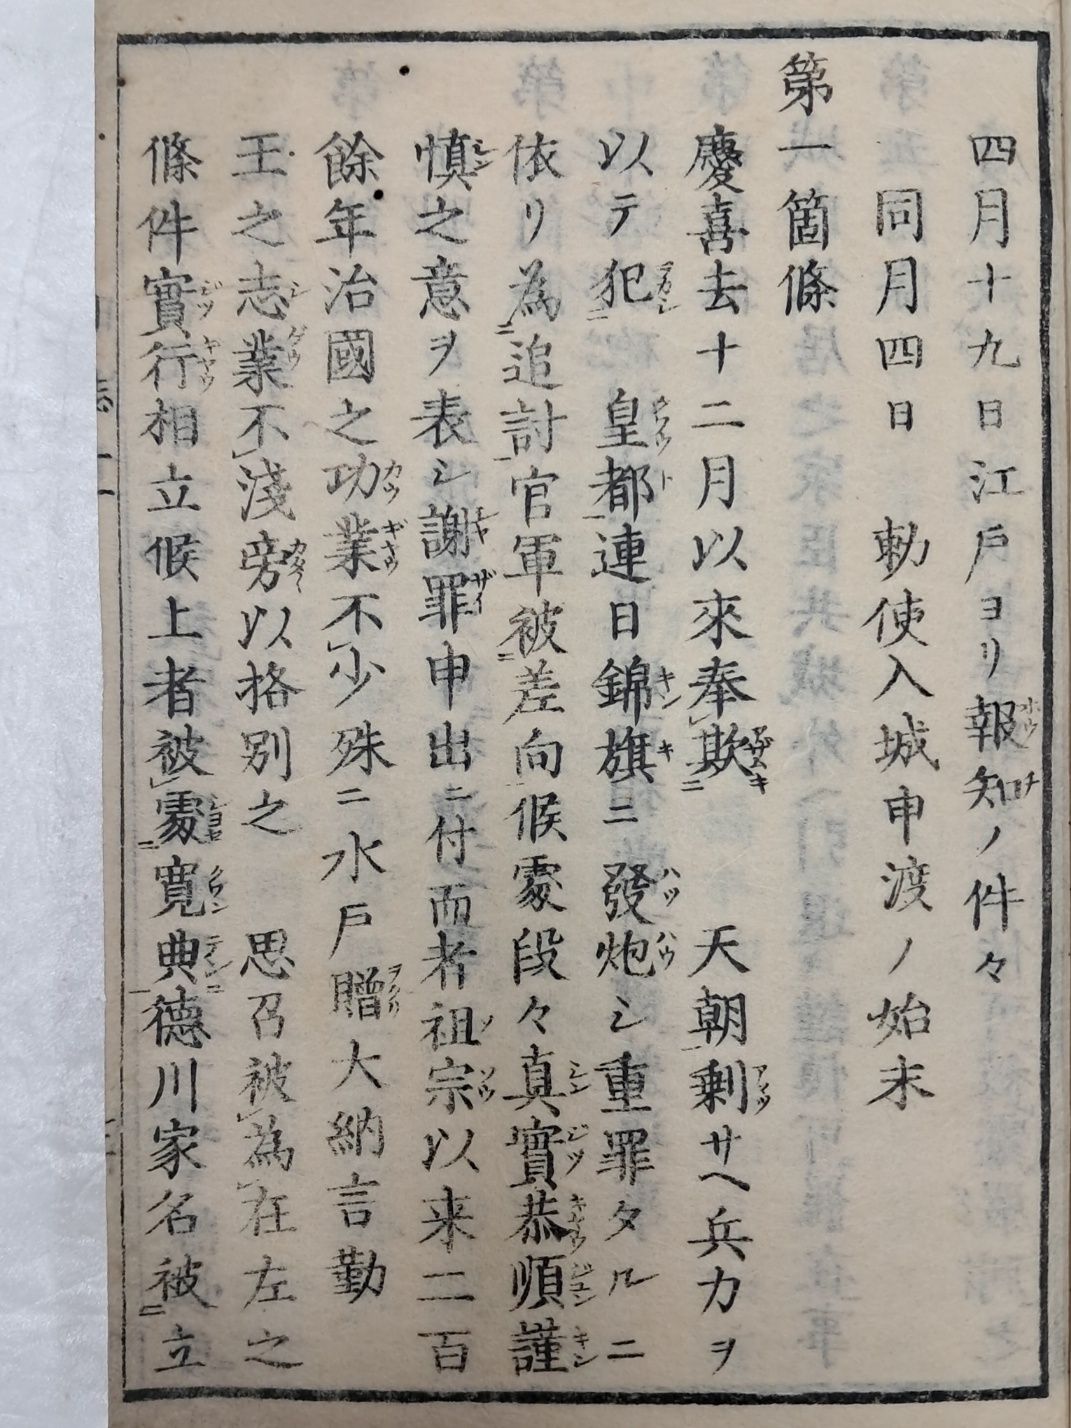 四月十九日江戸ヨリ報知ノ件々
同月四日 勅使入城申渡ノ始末
第一箇條
慶喜去十二月以來奉欺 天朝剰サヘ兵力ヲ
以テ犯 皇都連日錦旗ニ發炮シ重罪タルニ
依リ為追討官軍被差向候處段々真實恭順謹
慎之意ヲ表シ謝罪申出ニ付而者祖宗以来二百
餘年治國之功業不少殊ニ水戸贈大納言勤
王之志業不淺旁以格別之 思召被為在左之
條件實行相立候上者被處寛典德川家名被立